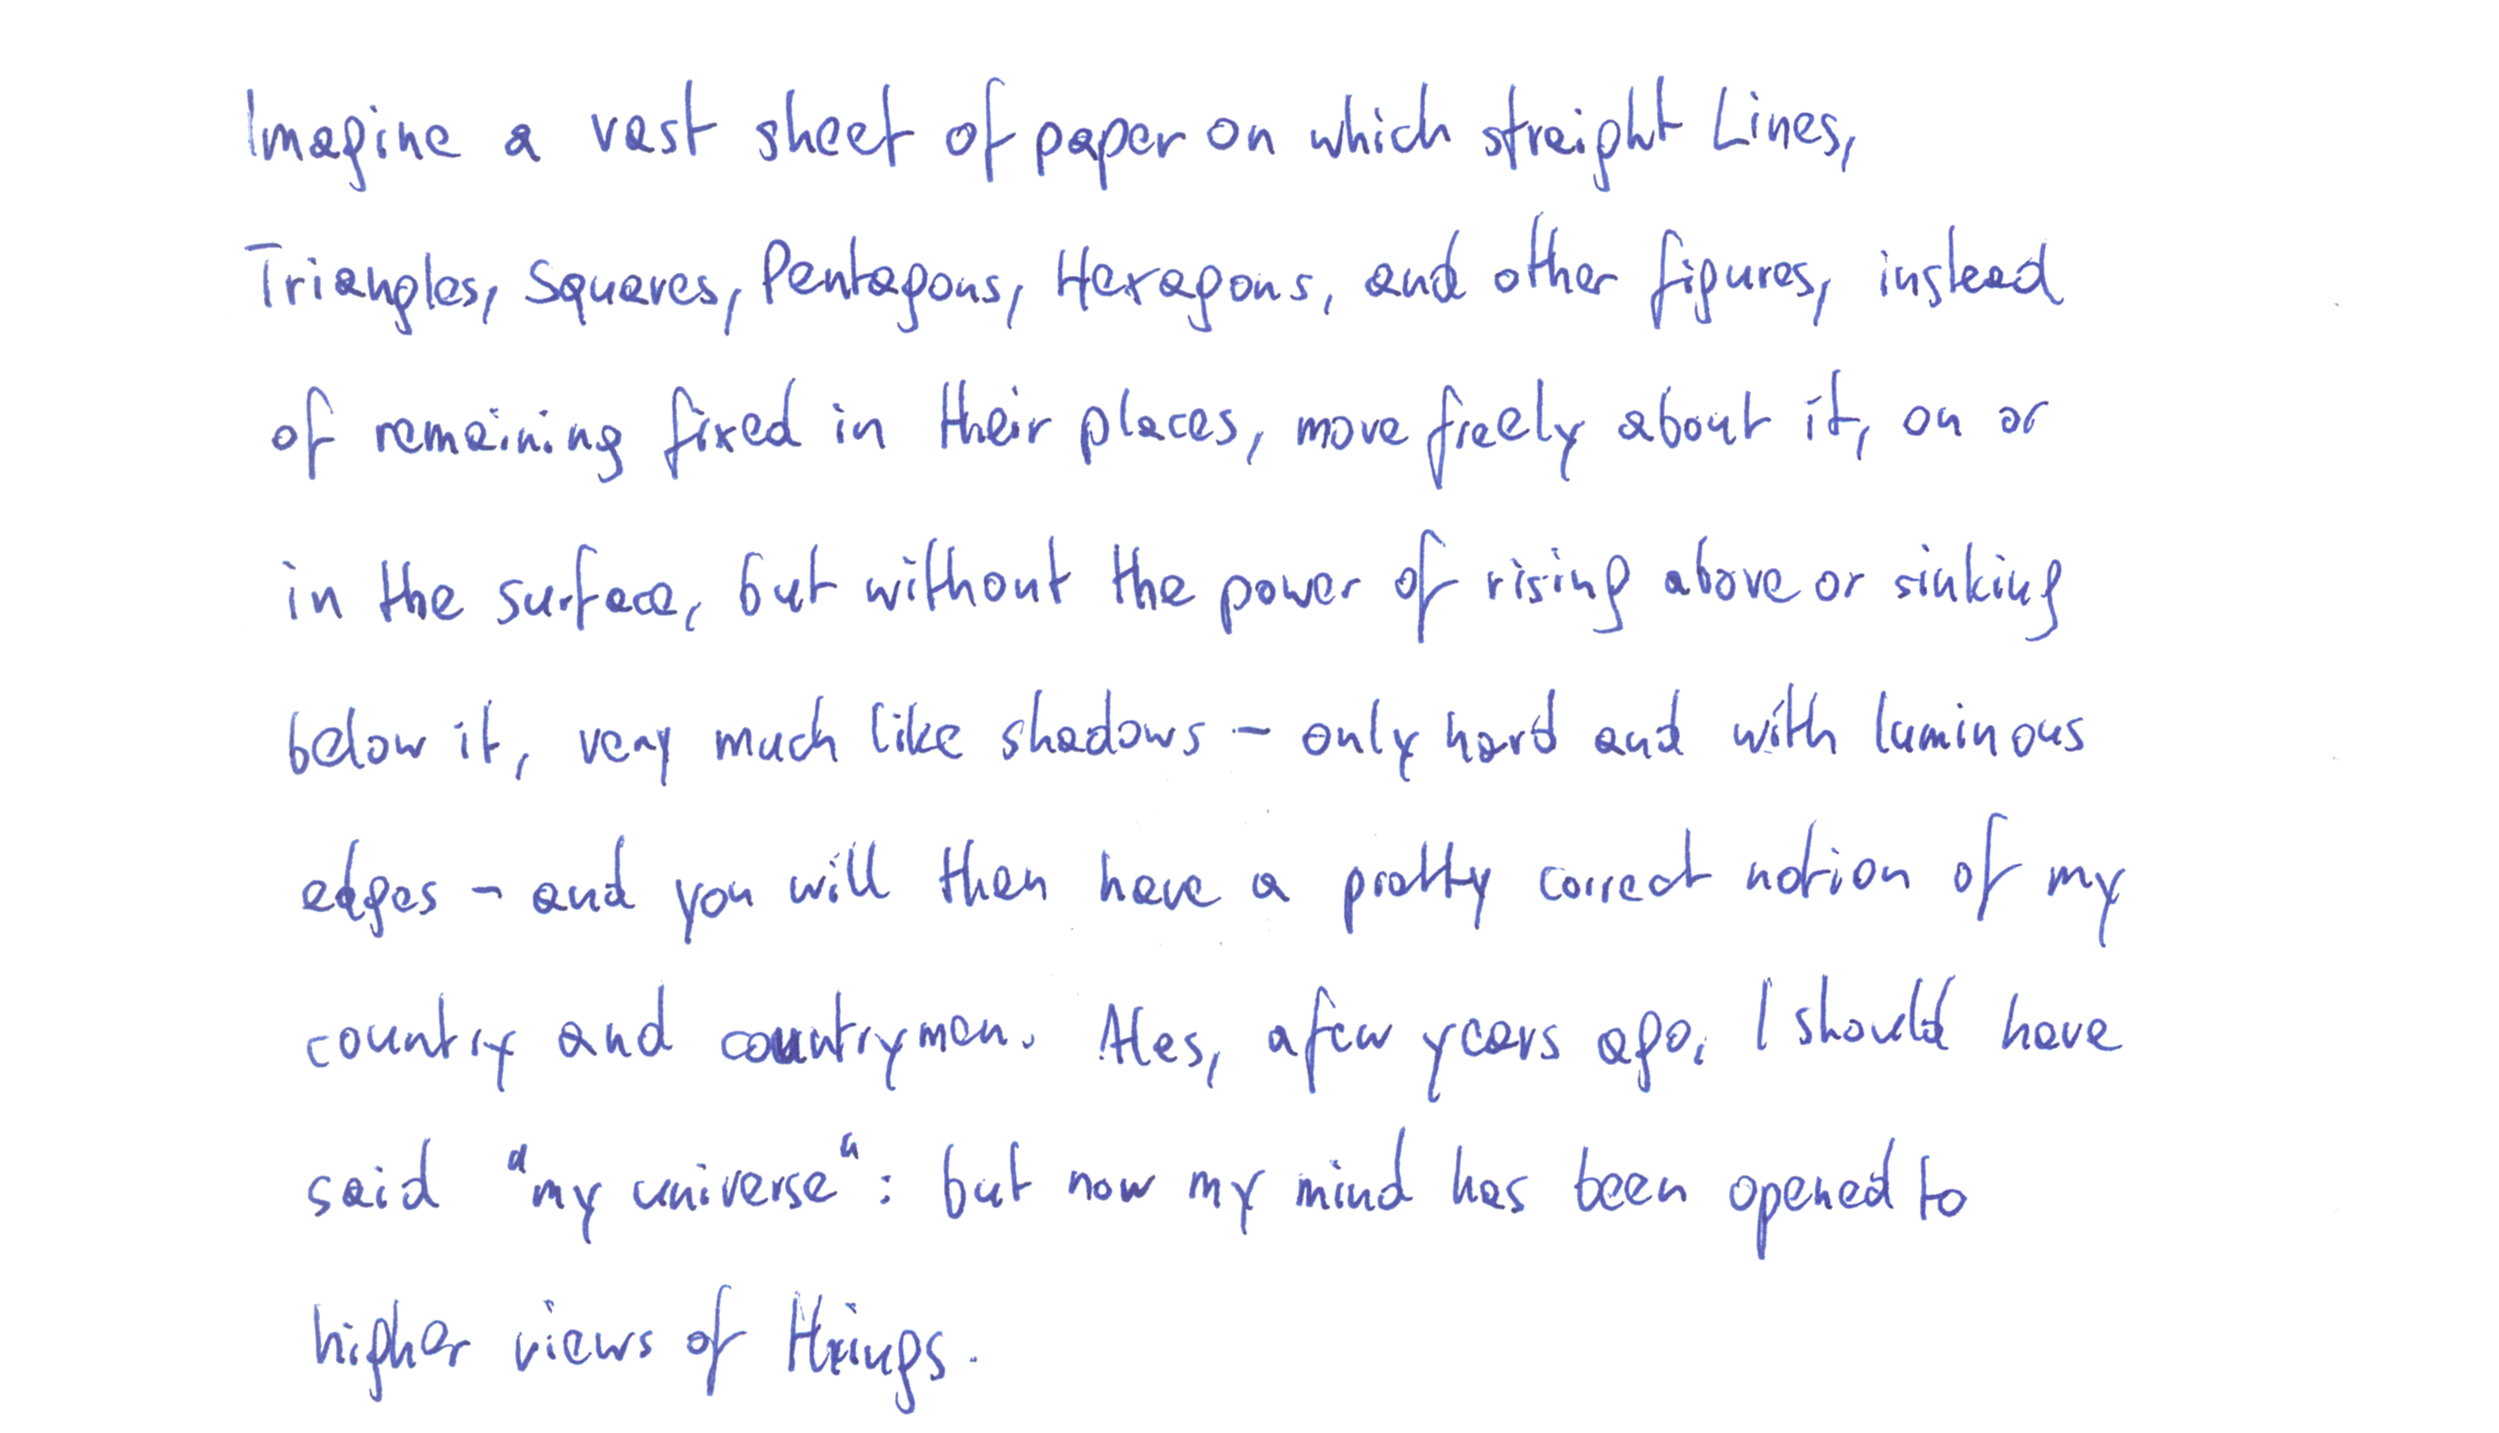 Imagine a vast sheet of paper on which straight Lines,
Triangles, Squares, Pentagons, Hexagons, and other figures, instead
of remaining fixed in their places, move freely about it, on or
in the surface, but without the power of rising above or sinking
below it, very much like shadows - only hard and with luminous
edges - and you will then have a pretty correct notion of my
country and countrymen. Alas, a few years ago, I should have
said "my universe": but now my mind has been opened to
higher views of things.